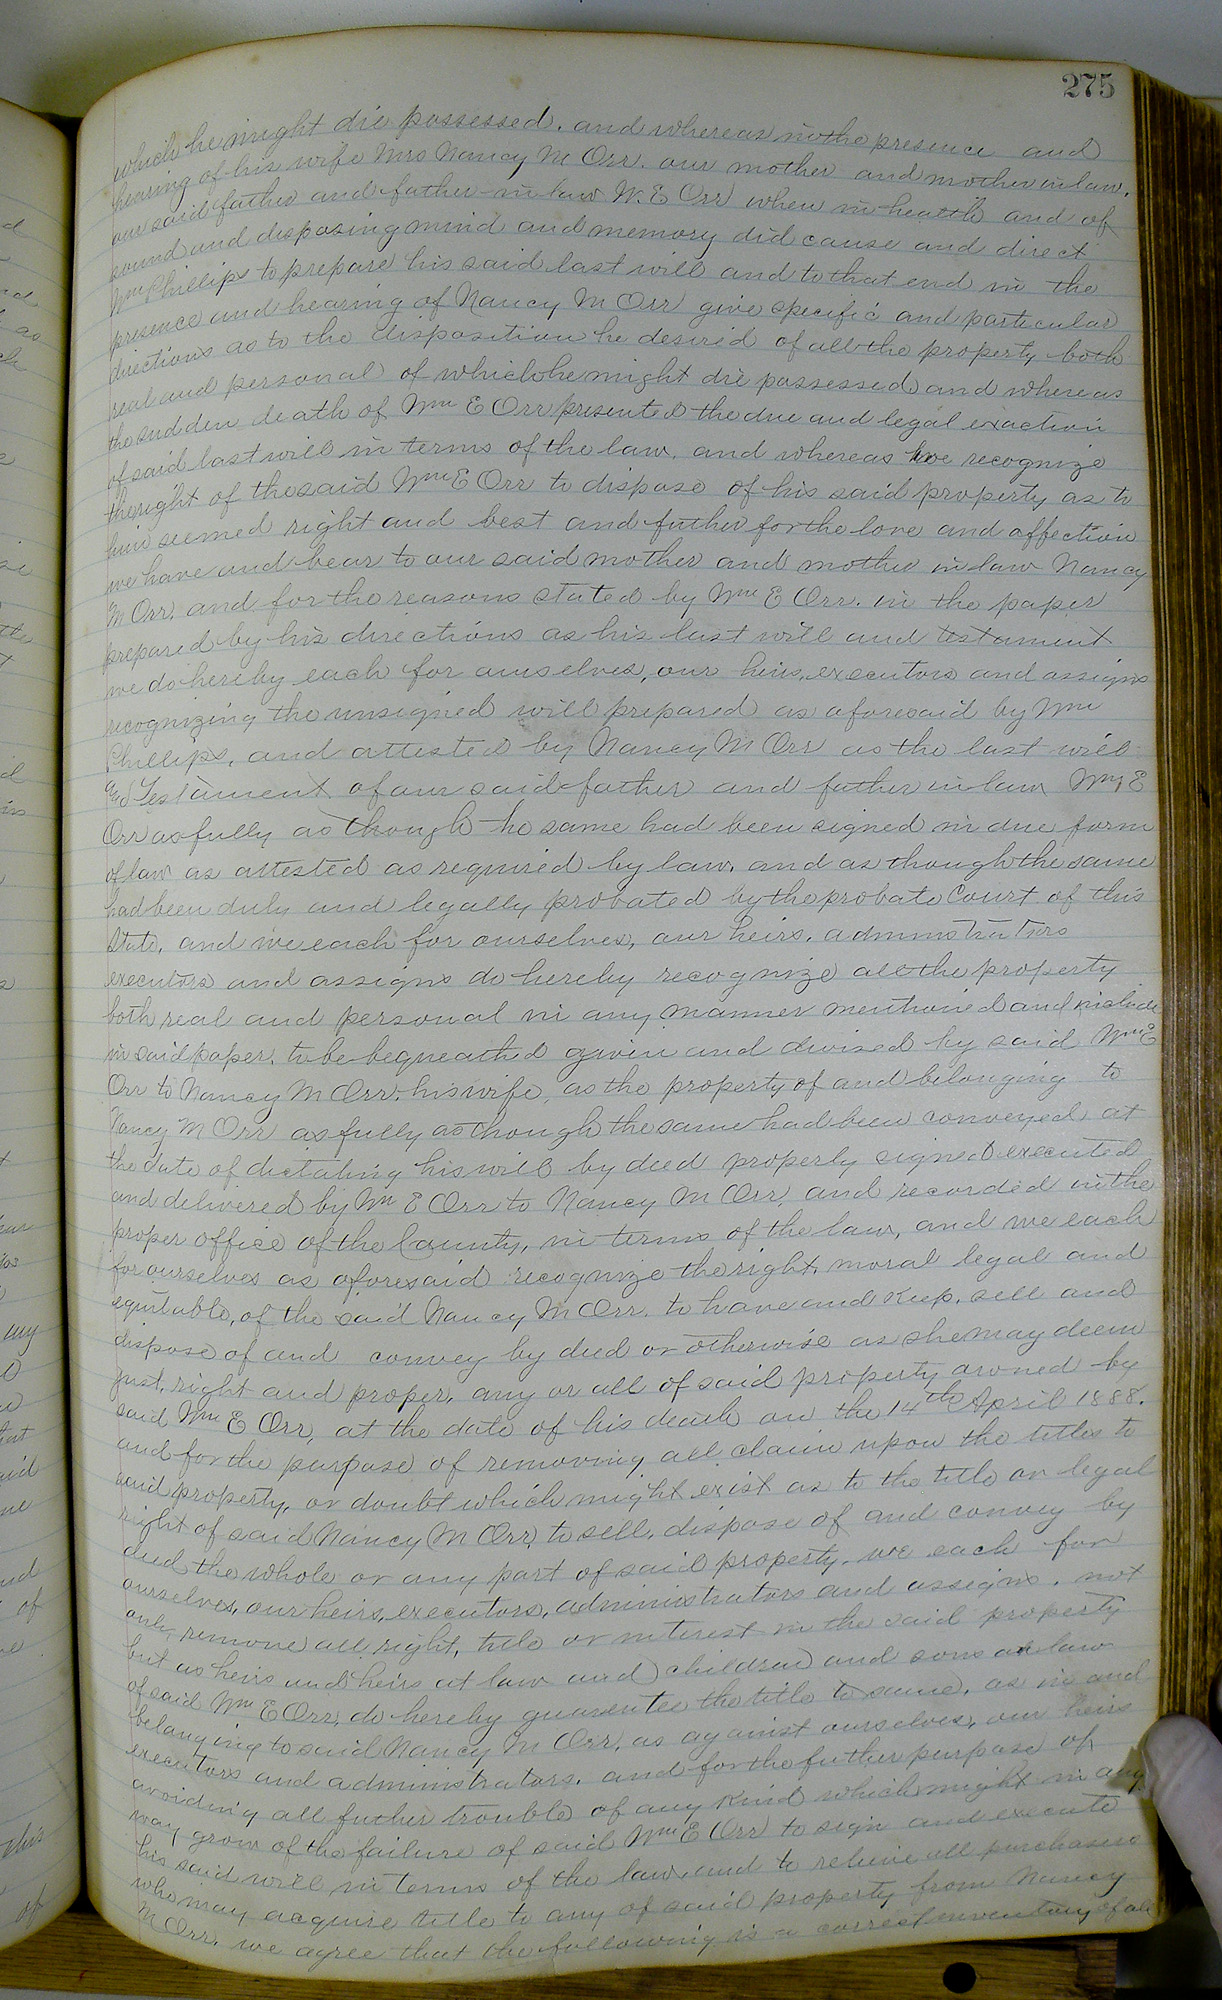 275
which he might die possessed. and whereas in the presence and
hearing of his wife Mrs Nancy M Orr. our mother and mother in law.
our said father and father-in law W. E Orr when in health and of
sound and disposing mind and memory did cause and direct
Wm Phillips to prepare his said last will and to that end in the
presence and hearing of Nancy M Orr give specific and particular
directions as to the disposition he desired of all the property both
real and personal of which he might die possessed and whereas
the sudden death of Wm E Orr presented the due and legal exaction
of said last will in terms of the law. and whereas we recognize
the right of the said Wm E Orr to dispose of his said property as to
him seemed right and best and futher for the love and affection
we have and bear to our said mother and mother in law Nancy
M Orr. and for the reasons stated by Wm E Orr. in the paper
prepared by his directions as his last will and testament
we do hereby each for ourselves, our heirs, executors and assigns
recognizing the unsigned will prepared as aforesaid by Wm
Phillips, and attested by Nancy M Orr as the last will
and Testament of our said father and father in law Wm E
Orr as fully as though the same had been signed in due form
of law as attested as required by law. and as though the same
had been duly and legally probated by the probate Court of this
State, and we each for ourselves, our heirs. administrators
executors and assigns do hereby recognize all the property
both real and personal in any manner mentioned and
in said paper. to be bequeathed given and divised by said Wm E
Orr to Nancy M Orr. his wife, as the property of and belonging to
Nancy M Orr as fully as though the same had been conveyed at
the date of dictating his will by deed properly signed executed
and delivered by Wm E Orr to Nancy M Orr, and recorded in the
proper office of the County, in terms of the law, and we each
for ourselves as aforesaid recognize the right, moral legal and
equitable, of the said Nancy M Orr. to have and keep, sell and
dispose of and convey by deed or otherwise as she may deem
just, right and proper, any or all of said property owned by
said Wm E Orr, at the date of his death on the 14th April 1888.
and for the purpose of removing all claim upon the titles to
said property, or doubt which might exist as to the title or legal
right of said Nancy M Orr, to sell, dispose of and convey by
deed the whole or any part of said property. we each for
ourselves, our heirs, executors, administrators and assigns. not
only remove all right, title or interest in the said property
but as heirs and heirs at law and children and sons at law
of said Wm E Orr, do hereby guarentee the title to same, as in and
belonging to said Nancy M Orr, as against ourselves, our heirs
executors and administrators. and for the futher purpose of
avoiding all futher trouble of any kind which might in any
way grow of the failure of said Wm E Orr to sign and execute
his said will in terms of the law, and to relieve all purchasers
who may acquire title to any of said property from Nancy
M Orr. we agree that the following is a correct inventory of all